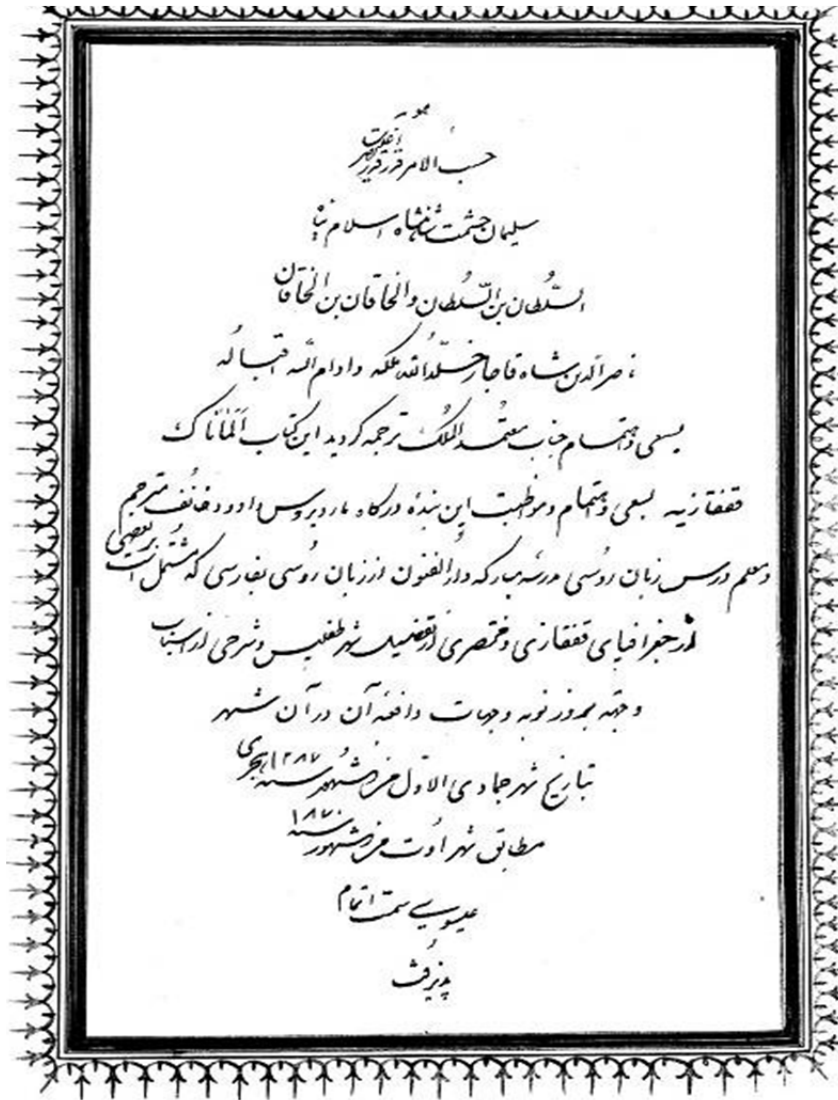 هو
حسب الامر قدر قدرت اعلیحضرت
سلیمان حشمت شاهنشاه اسلام پناه
السُلطان بن السُلطان والخاقان بن الخاقان
ناصرالدین شاه قاجار خلّد الله ملکه وادام الله اقباله
بسعی و اهتمام جناب معتمد الملک ترجمه کردید این کتاب اَلماناک
قفقازیه بسعی و اهتمام و مواظبت این بندهٔ درکاه مارديروس داود خانُف مترجم
و معلم درس زبان روُسی مدرسه مبارکه دارالفنون از زبان روُسی بفارسی که مشتمل است بر بعضی
از جغرافیای قفقازی و مختصری از تفضیل شهر طفلیس و شرحی از اسباب
و جهة بروز نوبه و جهات دافعهٔ آن در آن شهر
بتاریخ شهر جمادی الاوّل من شهُور سنه ۱۲۸۷ هجری
مطابق شهر اوُت من شهور سنه ۱۸۷۰
عیسویه سمت اتمام
پذیرفت